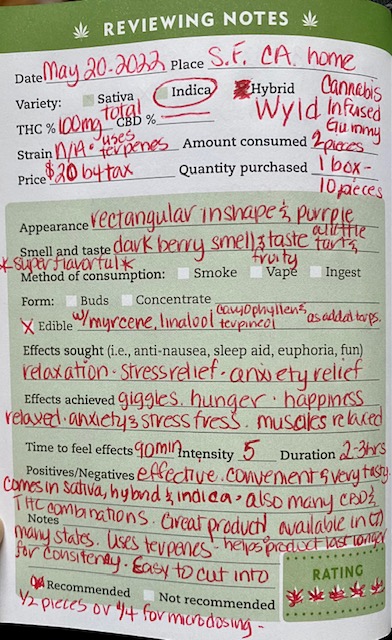 REVIEWING NOTES
Date May 20-2022 Place S.F. CA. home
Variety: Sativa Indica Hybrid Cannabis
THC % 100mg total CBD % Wyld Infused Gummy
Strain N/A · uses terpenes Amount consumed 2 pieces
Price $20 b4 tax Quantity purchased 1 box -
10 pieces
Appearance rectangular in shape & purple
Smell and taste dark berry smell & taste a little tart &
*super flavorful* fruity
Method of consumption: Smoke Vape Ingest
Form: Buds Concentrate
X Edible w/ myrcene, linalool terpineol as added terps.
Effects sought (i.e., anti-nausea, sleep aid, euphoria, fun)
relaxation · stress relief · anxiety relief
Effects achieved giggles. hunger · happiness
relaxed · anxiety & stress fress. muscles relaxed
Time to feel effects 90min Intensity 5 Duration 2-3hrs
Positives/Negatives effective. convenient & very tasty
comes in sativa, hybrid & indica · also many CBD &
THC combinations. Great product! available in
Notes many states. Uses terpenes - helps product last longer
for consitency. Easy to cut into
RATING
Recommended Not recommended
1/2 pieces or 1/4 for microdosing -